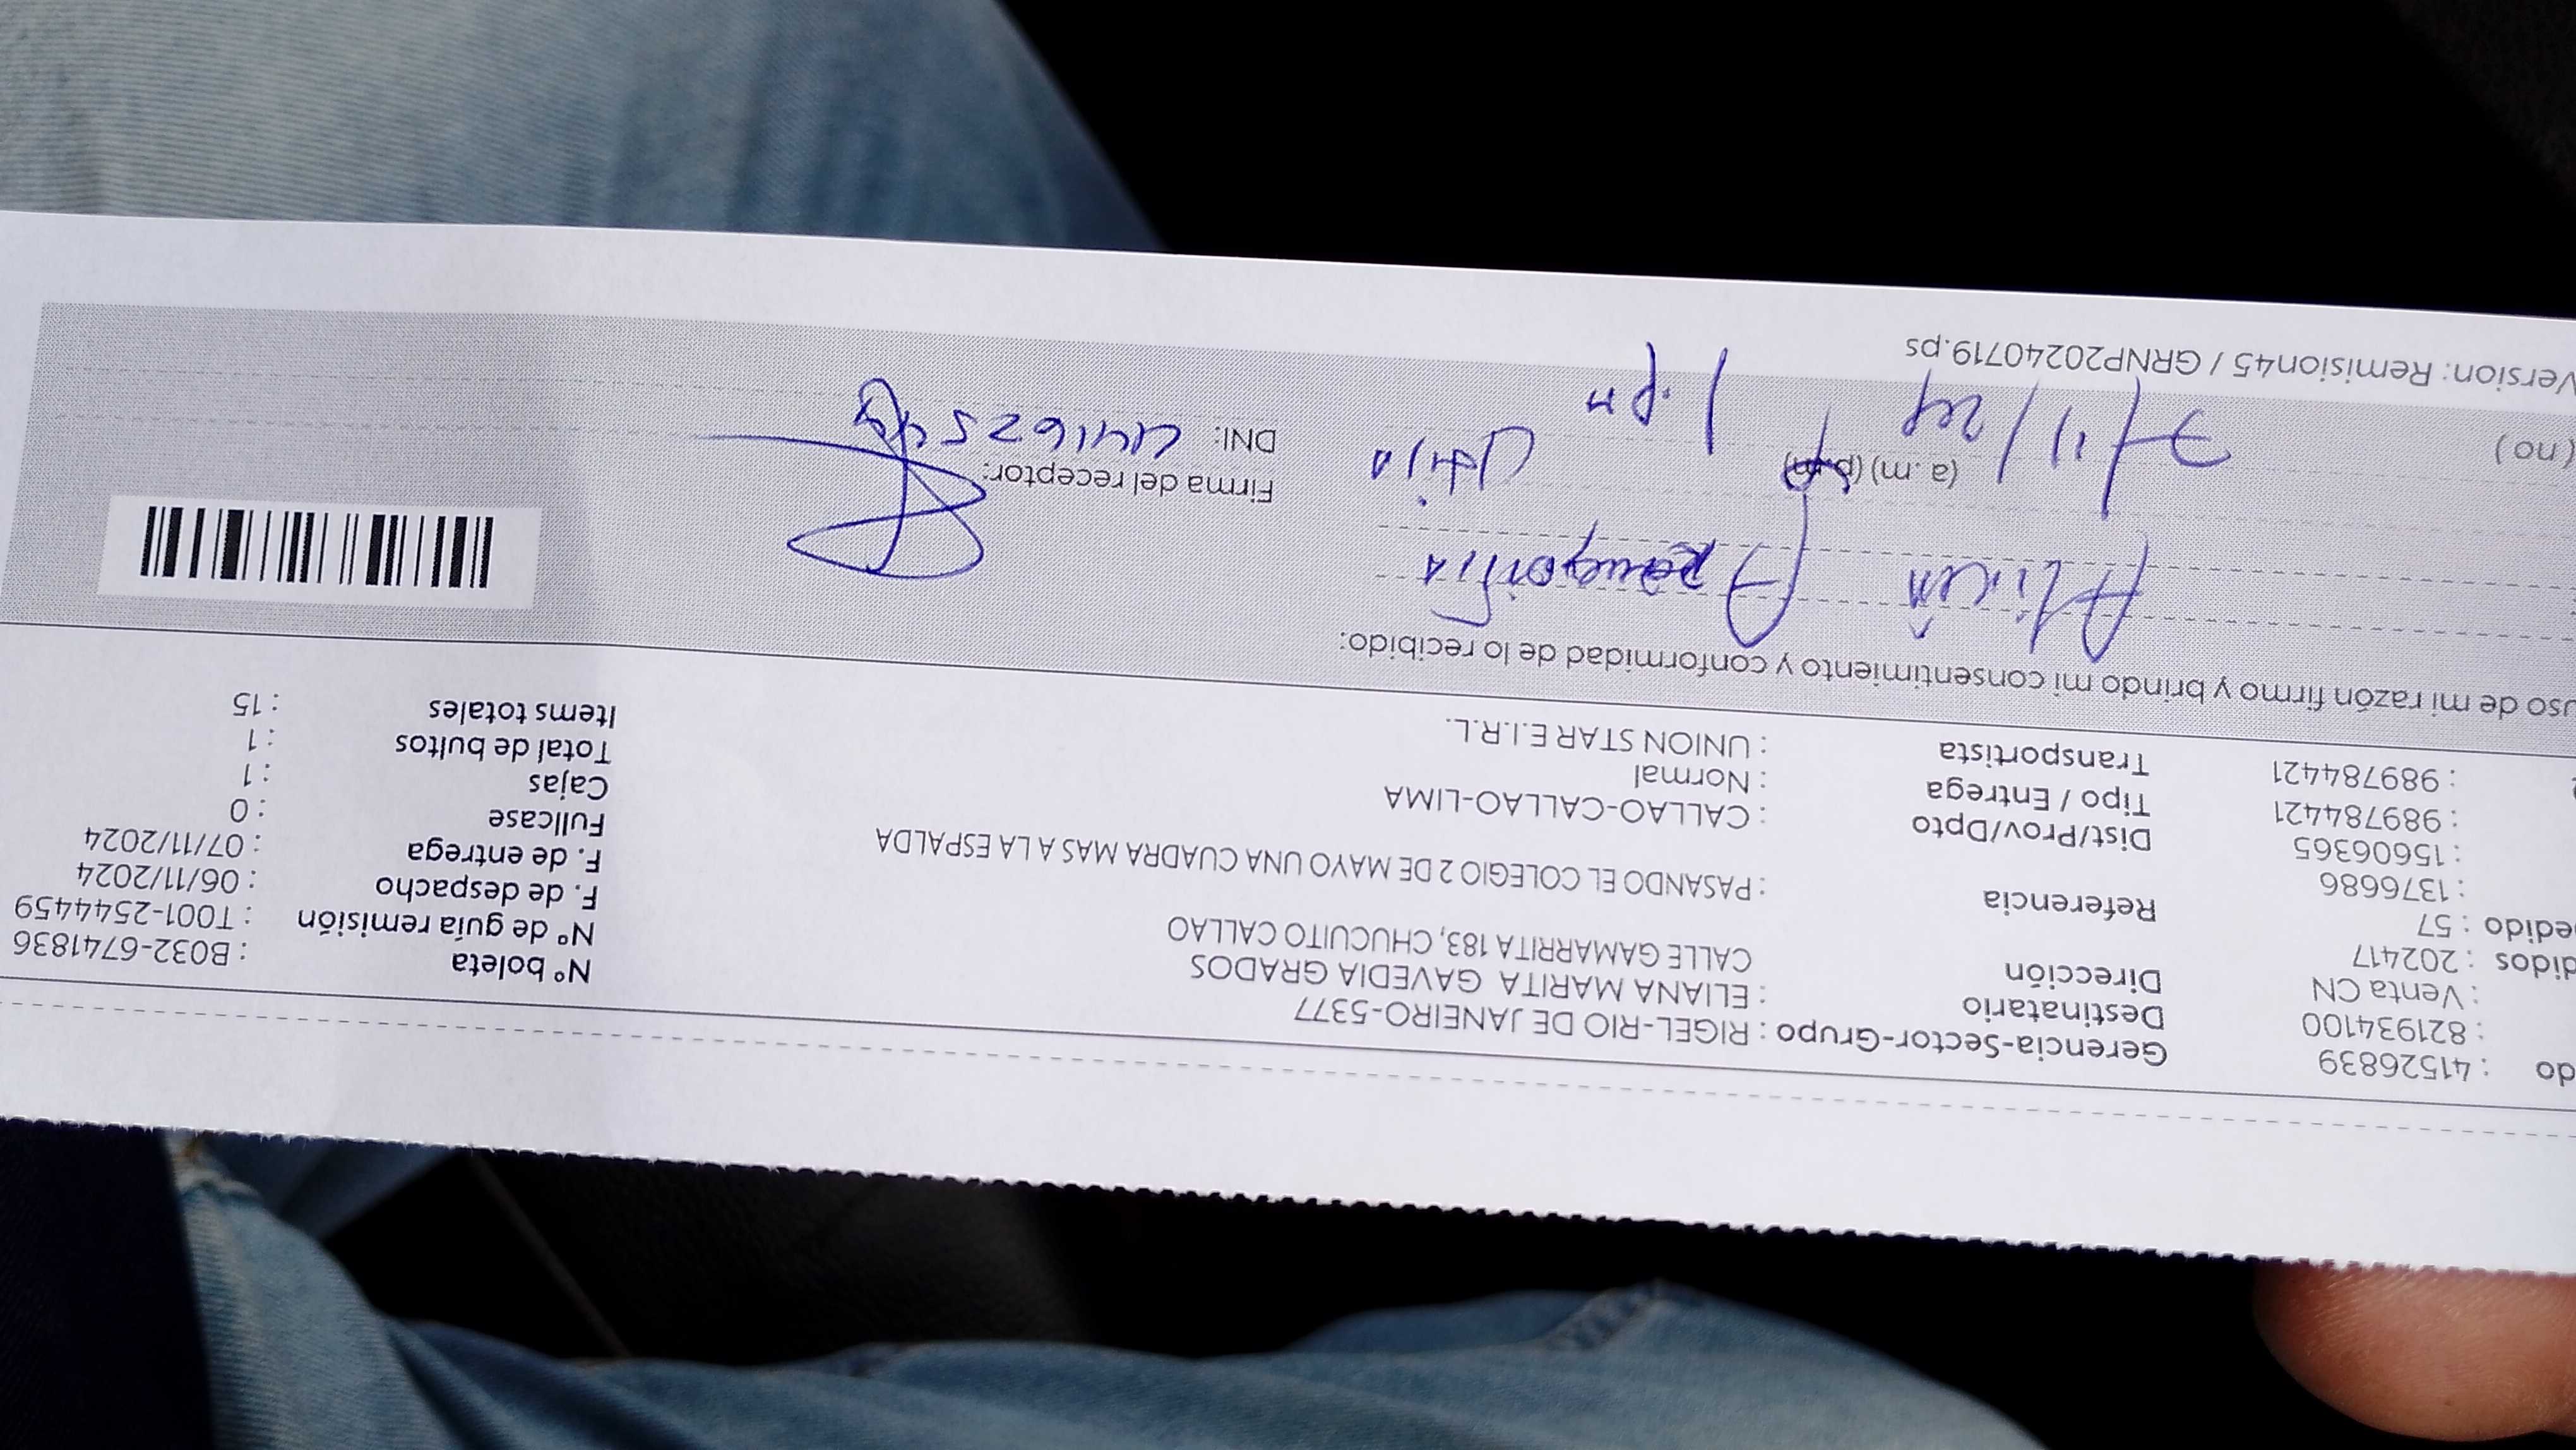 do : 41526839 Gerencia-Sector-Grupo : RIGEL-RIO DE JANEIRO-5377
: 821934100 Destinatario : ELIANA MARITA GAVEDIA GRADOS Nº boleta : B032-6741836
: Venta CN Dirección CALLE GAMARRITA 183, CHUCUITO CALLAO Nº de guía remisión : T001-2544459
didos : 202417 F. de despacho : 06/11/2024
edido : 57 Referencia : PASANDO EL COLEGIO 2 DE MAYO UNA CUADRA MAS A LA ESPALDA F. de entrega : 07/11/2024
: 1376686 Fullcase : 0
: 15606365 Dist/Prov/Dpto : CALLAO-CALLAO-LIMA Cajas : 1
: 989784421 Tipo / Entrega : Normal Total de bultos : 1
: 989784421 Transportista : UNION STAR E.I.R.L. Items totales : 15
uso de mi razón firmo y brindo mi consentimiento y conformidad de lo recibido:
(a.m) (p.m) Firma del receptor:
(no) 7/11/24 1.pm DNI:
Version: Remision45 / GRNP20240719.ps